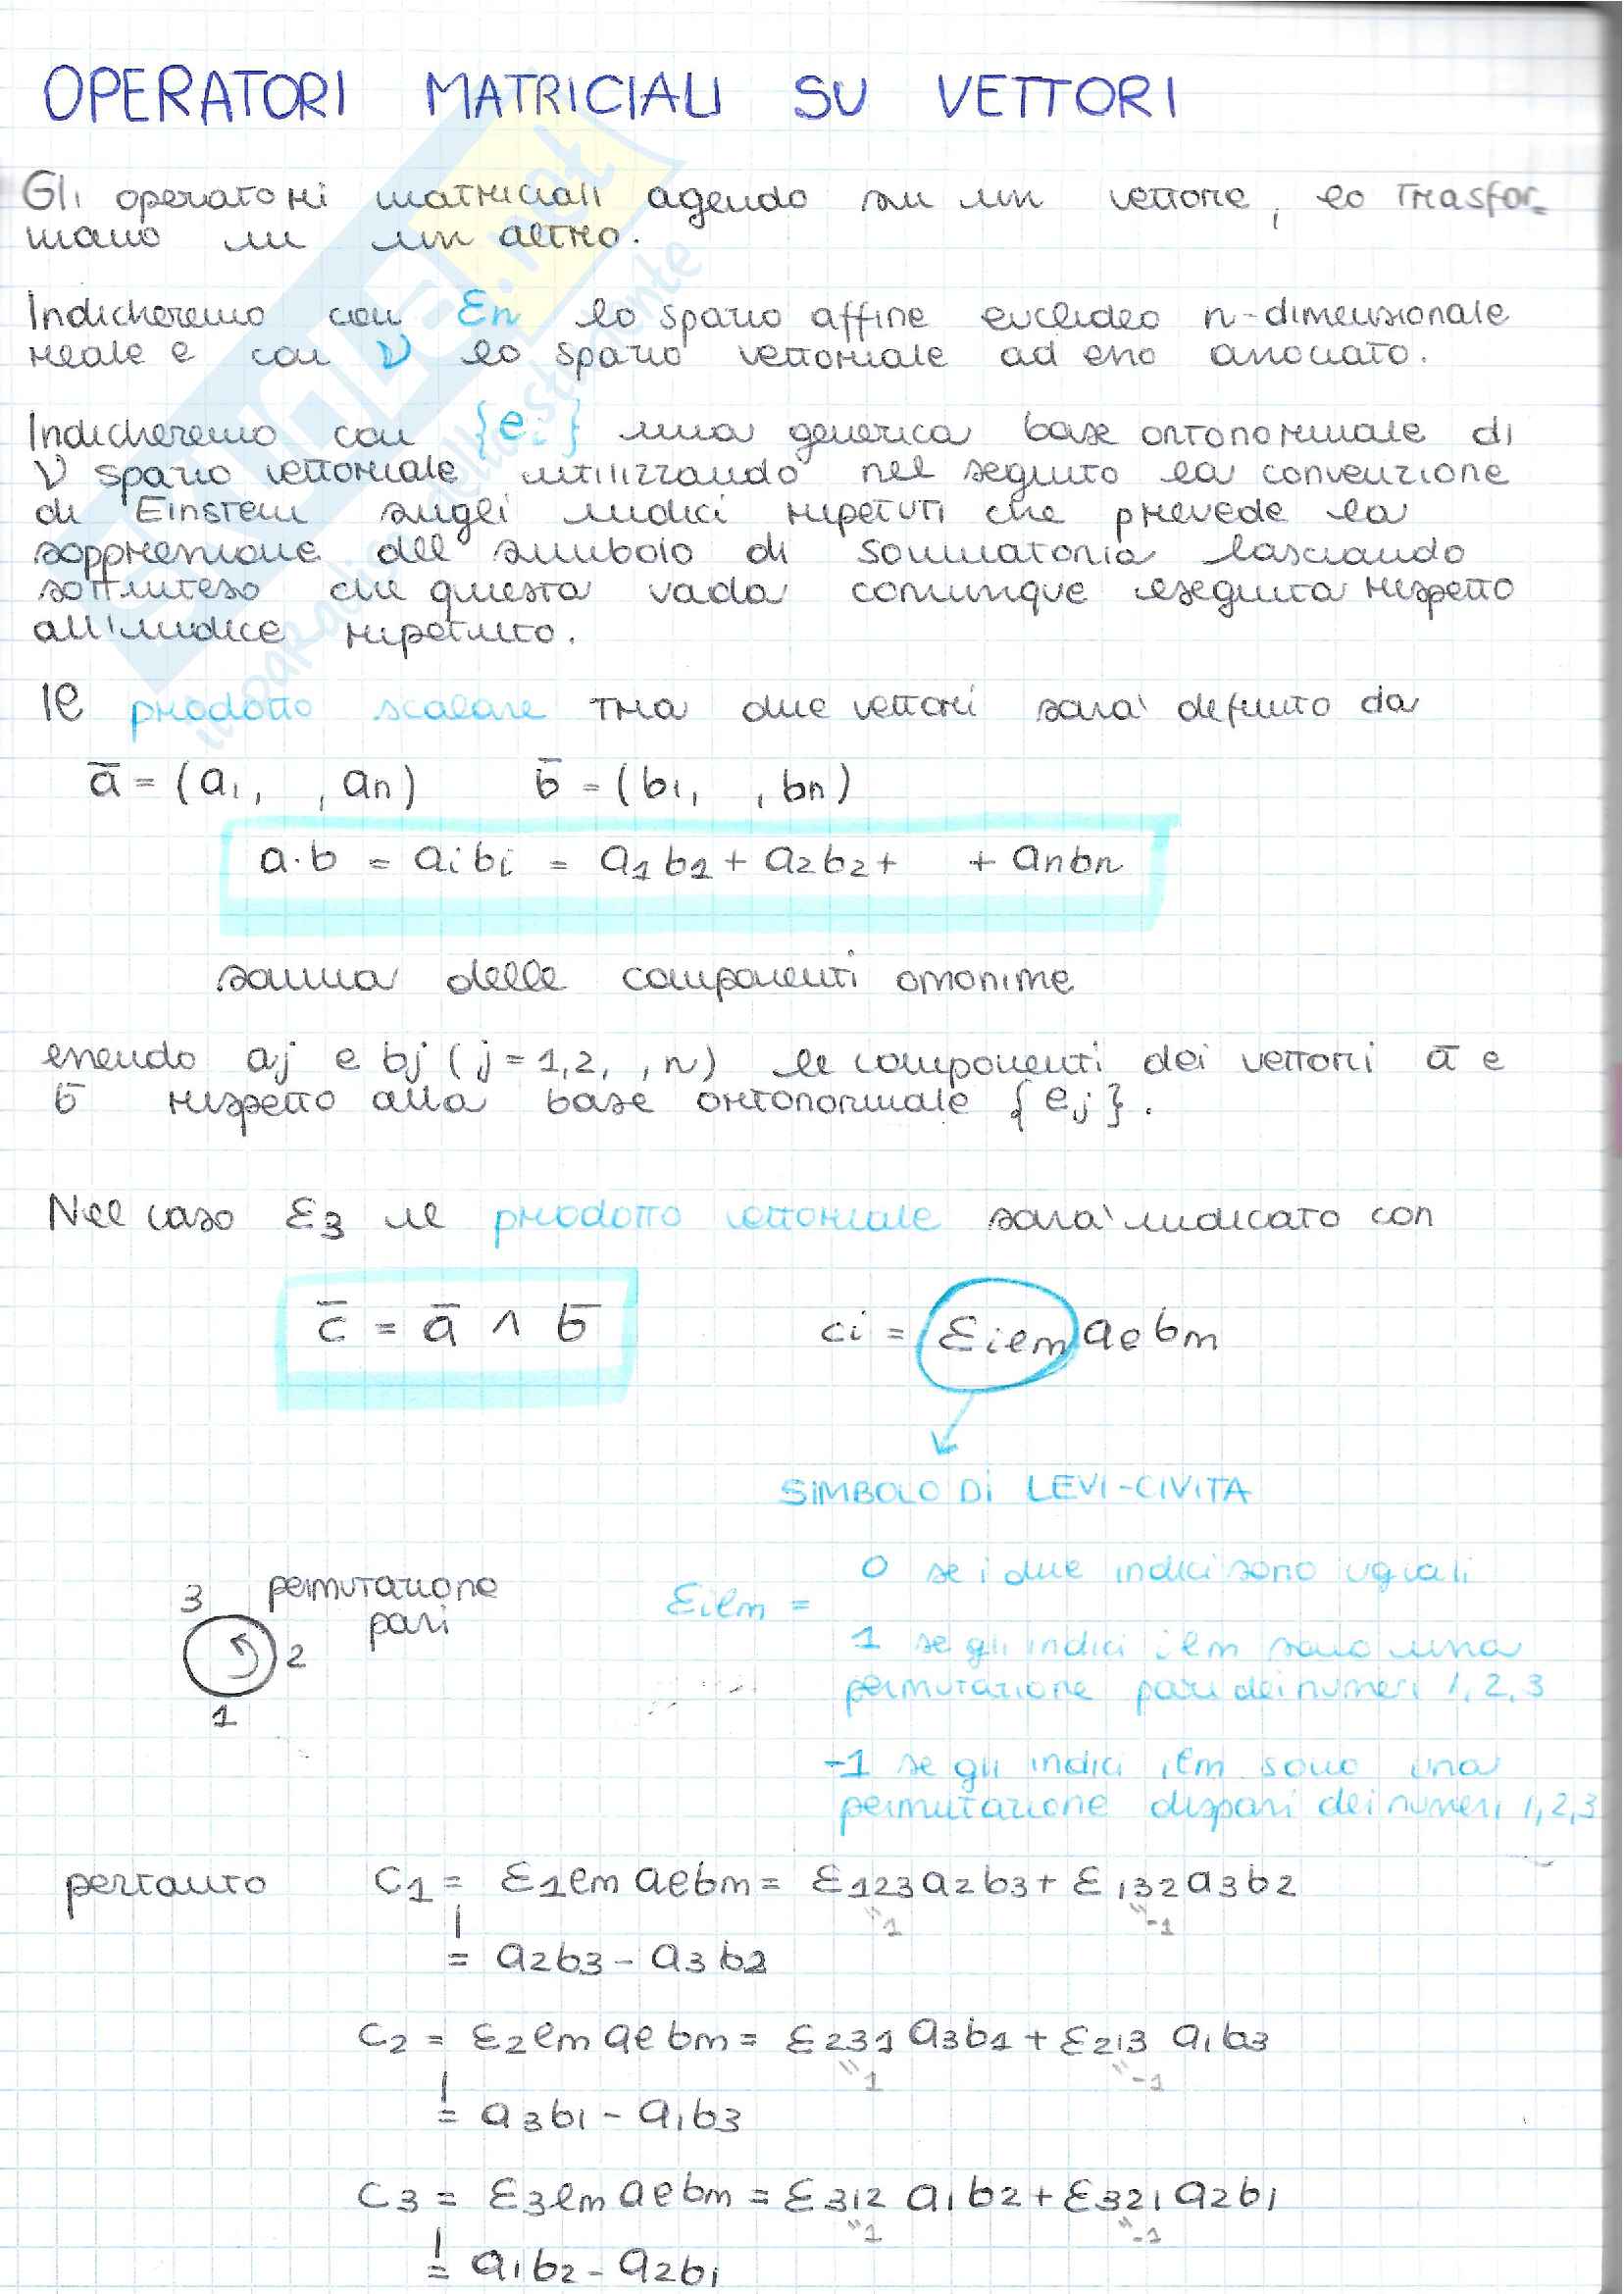 OPERATORI MATRICIALI SU VETTORI
Gli operatori matriciali agendo su un vettore, lo trasfor-
mano in un altro.
Indicheremo con Ɛn lo spazio affine euclideo n-dimensionale
reale e con V lo spazio vettoriale ad esso associato.
Indicheremo con {ei} una generica base ortonormale di
V spazio vettoriale utilizzando nel seguito la convenzione
di Einstein sugli indici ripetuti che prevede la
soppressione del simbolo di sommatoria lasciando
sottinteso che questa vada comunque eseguita rispetto
all'indice ripetuto.
Il prodotto scalare tra due vettori sara' definito da
ā = (a1, , an) b̄ = (b1, , bn)
a·b = aibi = a1b1 + a2b2 + + anbn
somma delle componenti omonime
essendo aj e bj (j=1,2, ,n) le componenti dei vettori ā e
b̄ rispetto alla base ortonormale {ej}.
Nel caso Ɛ3 il prodotto vettoriale sara' indicato con
c̄ = ā ∧ b̄ ci = Ɛilm al bm
SIMBOLO DI LEVI-CIVITA
3 permutazione
pari
2
1
Ɛilm =
0 se i due indici sono uguali
1 se gli indici ilm sono una
permutazione pari dei numeri 1, 2, 3
-1 se gli indici ilm sono una
permutazione dispari dei numeri 1,2,3
pertanto C1 = Ɛ1lm albm = Ɛ123 a2b3 + Ɛ132 a3b2
"1 "-1
= a2b3 - a3b2
C2 = Ɛ2lm albm = Ɛ231 a3b1 + Ɛ213 a1b3
"1 "-1
= a3b1 - a1b3
C3 = Ɛ3lm albm = Ɛ312 a1b2 + Ɛ321 a2b1
"1 "-1
= a1b2 - a2b1